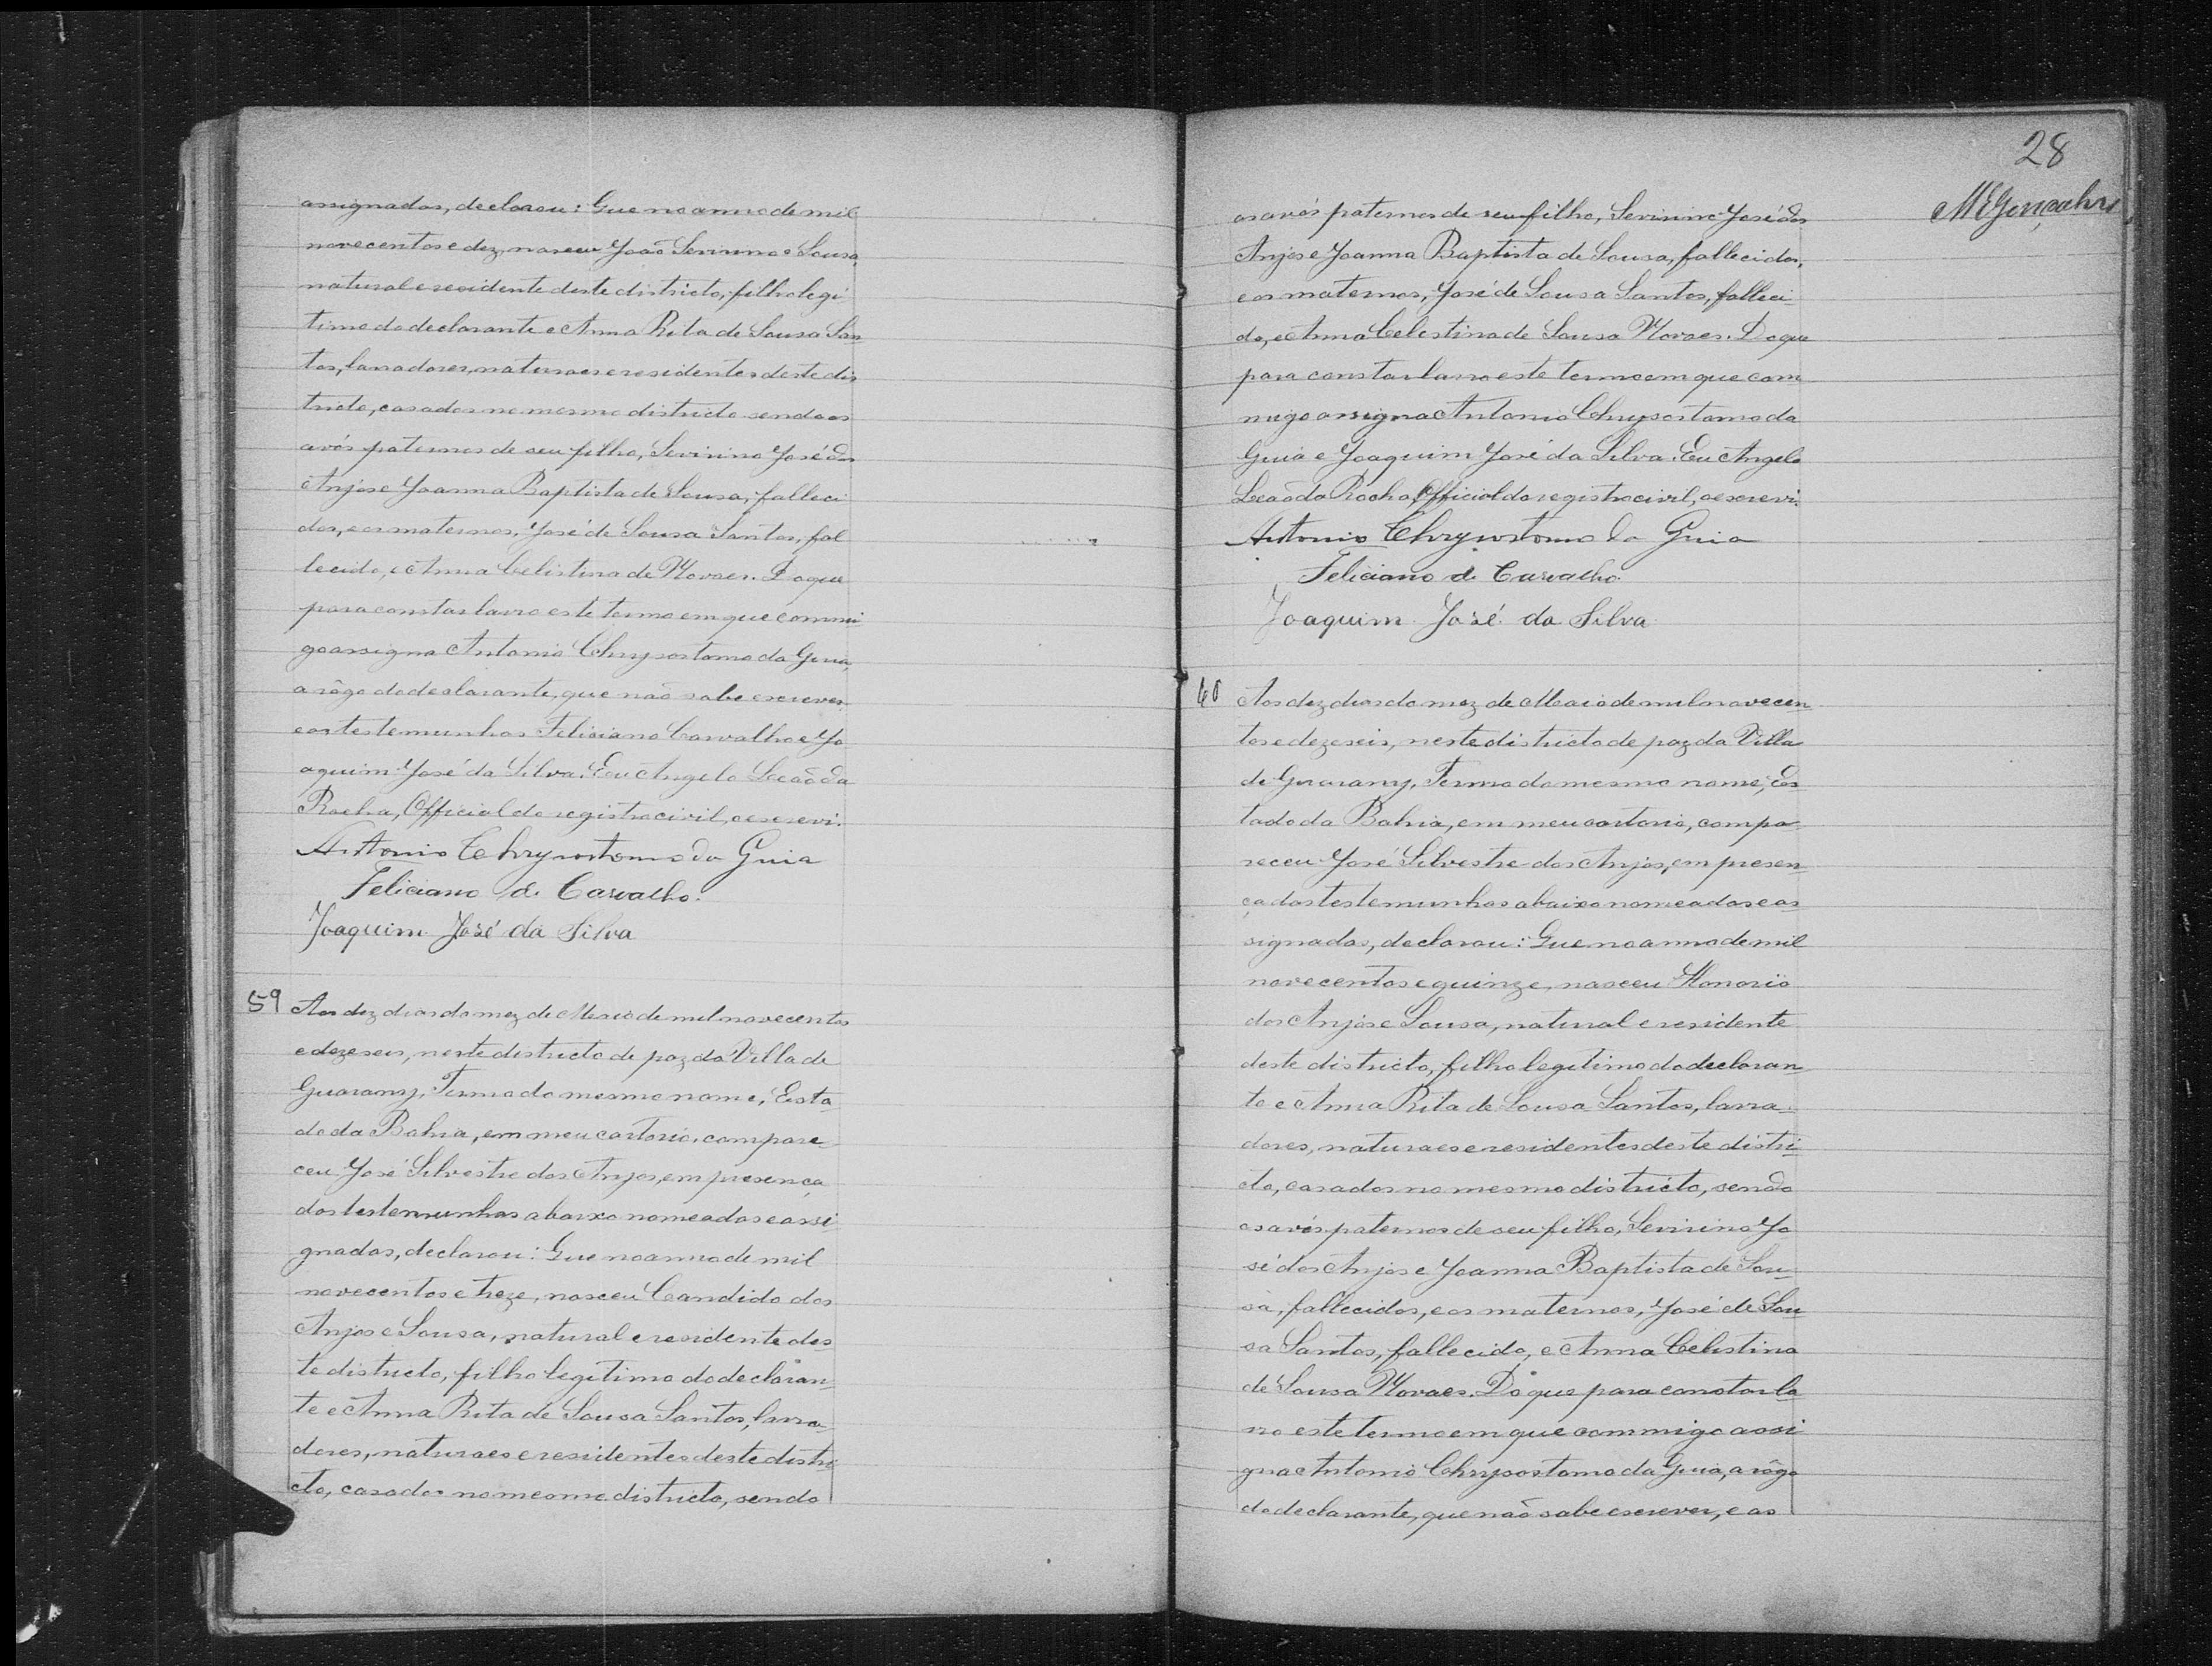 assignadas, declarou: Que no anno de mil
novecentos e dez, nasceu João Sevirino e Sousa,
natural e residente deste districto, filho legi
timo do declarante e Anna Rita de Sousa San
tos, lavradores, naturaes e residentes deste dis
tricto, casados no mesmo districto sendo os
avós paternos de seu filho, Sevirino José dos
Anjos e Joanna Baptista de Sousa, falleci
dos, e os maternos, José de Sousa Santos, fal
lecido, e Anna Celistina de Moraes. Do que
para constar lavro este termo em que commi
go assigna Antonio Chrysostomo da Guia,
a rôgo do declarante, que não sabe escrever
e as testemunhas Feliciano Carvalho e Jo
aquim José da Silva. Eu Angelo Lecaõ da
Rocha, Official do registro civil, o escrevi.
Antonio Chrysostomo da Guia
Feliciano de Carvalho.
Joaquim José da Silva
59 Aos dez dias do mez de Maio de mil novecentos
e dezeseis, neste districto de paz da Villa de
Guarany, Termo do mesmo nome, Esta
do da Bahia, em meu cartorio, compare
ceu José Silvestre dos Anjos, em presença
das testemunhas abaixo nomeadas e assi
gnadas, declarou: Que no anno de mil
novecentos e treze, nasceu Candido dos
Anjos e Sousa, natural e residente des
te districto, filho legitimo do declaran
te e Anna Rita de Sousa Santos, lavra
dores, naturaes e residentes deste distri
cto, casados no mesmo districto, sendo
28
MEGonçalves
os avós paternos de seu filho, Sevirino José dos
Anjos e Joanna Baptista de Sousa, fallecidos,
e os maternos, José de Sousa Santos, falleci
do, e Anna Celestina de Sousa Moraes. Do que
para constar lavro este termo em que com
migo assigna Antonio Chrysostomo da
Guia e Joaquim José da Silva. Eu Angelo
Lecaõ da Rocha, Official do registro civil, o escrevi.
Antonio Chrysostomo da Guia
Feliciano de Carvalho.
Joaquim José da Silva
60 Aos dez dias do mez de Maio de mil novecen
tos e dezeseis, neste districto de paz da Villa
de Guarany, Termo do mesmo nome, Es
tado da Bahia, em meu cartorio, compa
receu José Silvestre dos Anjos, em presen
ça das testemunhas abaixo nomeadas e as
signadas, declarou: Que no anno de mil
novecentos e quinze, nasceu Honorio
dos Anjos e Sousa, natural e residente
deste districto, filho legitimo do declaran
te e Anna Rita de Sousa Santos, lavra
dores, naturaes e residentes deste distri
cto, casados no mesmo districto, sendo
os avós paternos de seu filho, Sevirino Jo
sé dos Anjos e Joanna Baptista de Sou
sa, fallecidos, e os maternos, José de Sou
sa Santos, fallecido, e Anna Celistina
de Sousa Moraes. Do que para constar la
vro este termo em que commigo assi
gna Antonio Chrysostomo da Guia, a rôgo
do declarante, que não sabe escrever, e as